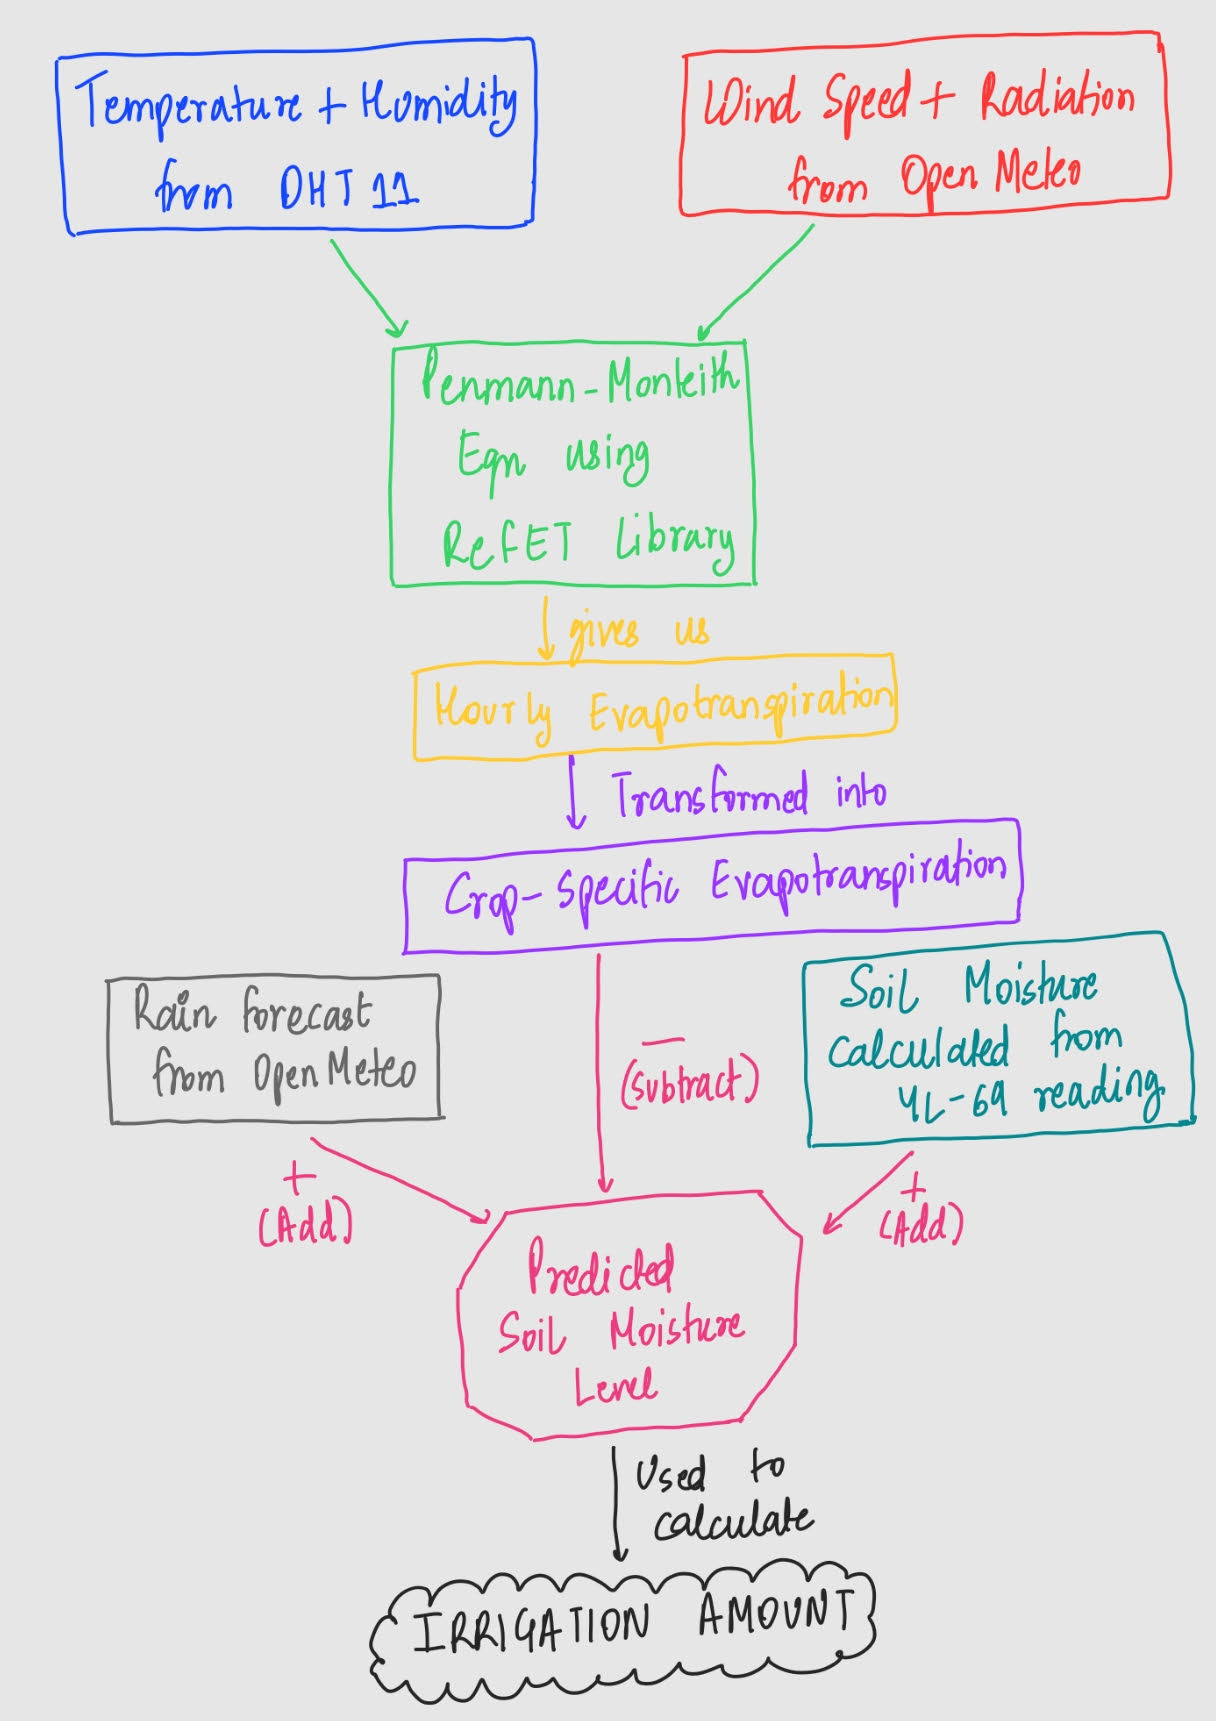 Temperature + Humidity
from DHT11
Wind Speed + Radiation
from Open Meteo
Penmann-Monteith
Eqn using
RefET Library
gives us
Hourly Evapotranspiration
Transformed into
Crop-Specific Evapotranspiration
Rain forecast
from Open Meteo
—
(subtract)
Soil Moisture
calculated from
YL-69 reading
+
(Add)
+
(Add)
Predicted
Soil Moisture
Level
Used to
calculate
IRRIGATION AMOUNT